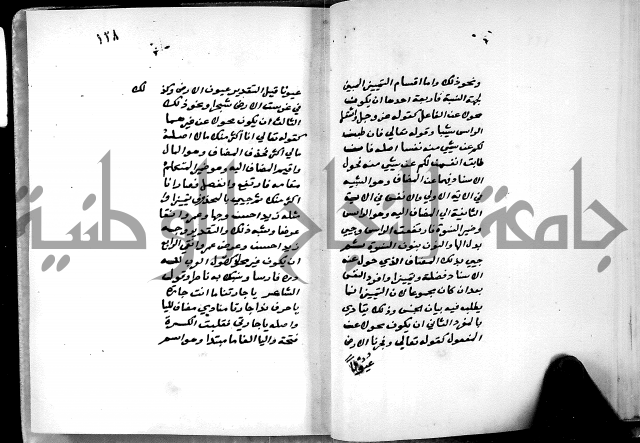 ونحو ذلك واما اقسام التمييز المبين
لجهة النسبة فاربعة احدها ان يكون
محولا عن الفاعل كقوله عز وجل واشتعل
الراس شيبا وقوله تعالى فان طبن
لكم عن شيء منه نفسا اصله فان
طابت انفسهن لكم عن شيء منه فحول
الاسناد فيهما عن المضاف وهو الشيب
في الآية الاولى والانفس في الآية
الثانية الى المضاف اليه وهو الراس
وضمير النسوة فارتفعت الراس وجيء
بدل الهاء والنون بنون النسوة ثم
جيء بذلك المضاف الذي حول عنه
الاسناد فضلة وتمييزا وافرد النفس
بعد ان كان مجموعا لان التمييز انما
يطلب فيه بيان الجنس وذلك يتادى
بالمفرد الثاني ان يكون محولا عن
المفعول كقوله تعالى وفجرنا الارض
عيونا
١٢٨
عيونا قيل التقدير عيون الارض وكذا
في غرست الارض شجرا ونحو ذلك
الثالث ان يكون محولا عن غيرهما
كقوله تعالى انا اكثر منك مالا اصله
مالي اكثر فحذف المضاف وهو المال
واقيم المضاف اليه وهو ضمير المتكلم
مقامه فارتفع وانفصل فصار انا
اكثر منك ثم جيء بالمحذوف تمييزا
مثله زيد احسن وجها وعمرو انقى
عرضا وشبه ذلك والتقدير وجه
زيد احسن وعرض عمرو انقى الرابع
ان يكون غير محول كقول العرب لله
دره فارسا وحسبك به ناصرا وقول
الشاعر يا جارتا ما انت جاره
يا حرف ندا جارتا منادى مضاف للياء
واصله يا جارتي فقلبت الكسرة
فتحة والياء الفا ما مبتدا وهو اسم
لك
جامعة النجاح الوطنية